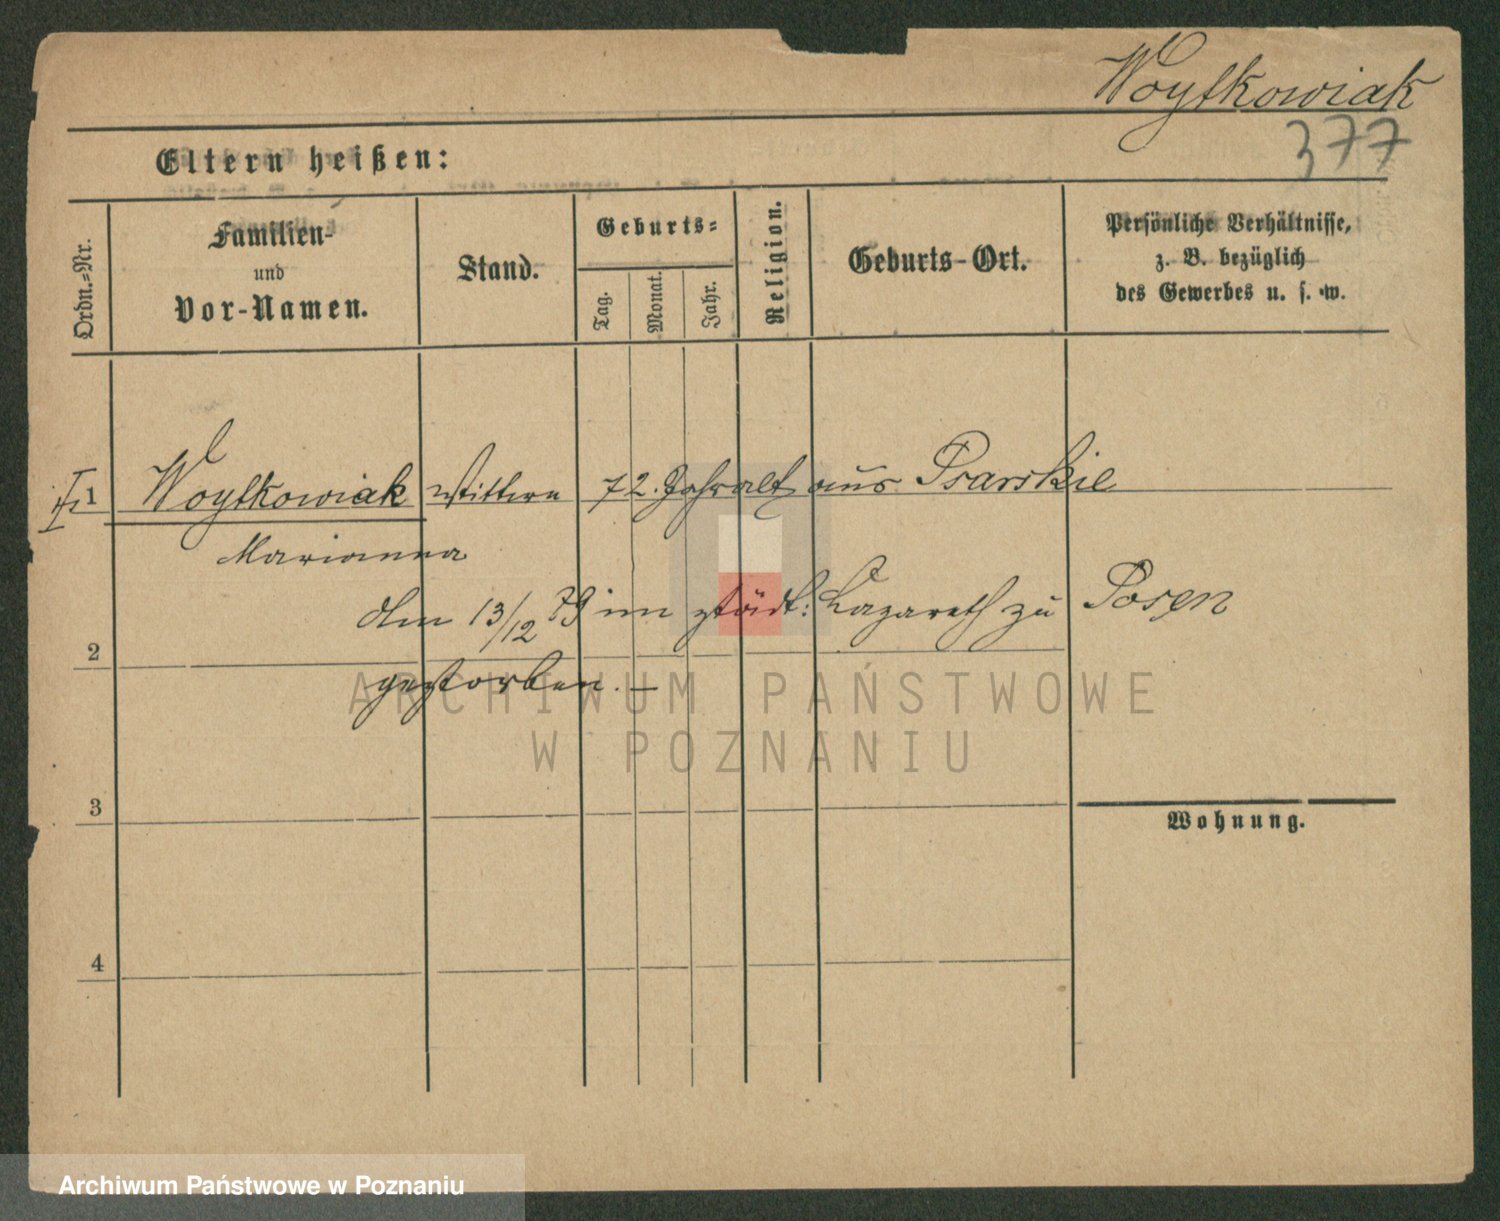 Woytkowiak
377
Eltern heißen:
Ordn.-Nr.
Familien-
und
Vor-Namen.
Stand.
Geburts-
Tag.
Monat.
Jahr.
Religion.
Geburts-Ort.
Persönliche Verhältnisse,
z. B. bezüglich
des Gewerbes u. s. w.
1 Woytkowiak Wittwe 72. Jahr alt aus Psarskie
Marianna
den 13/12 79 im städt: Lazareth zu Posen
2
gestorben. —
ARCHIWUM PAŃSTWOWE
W POZNANIU
3
Wohnung.
4
Archiwum Państwowe w Poznaniu